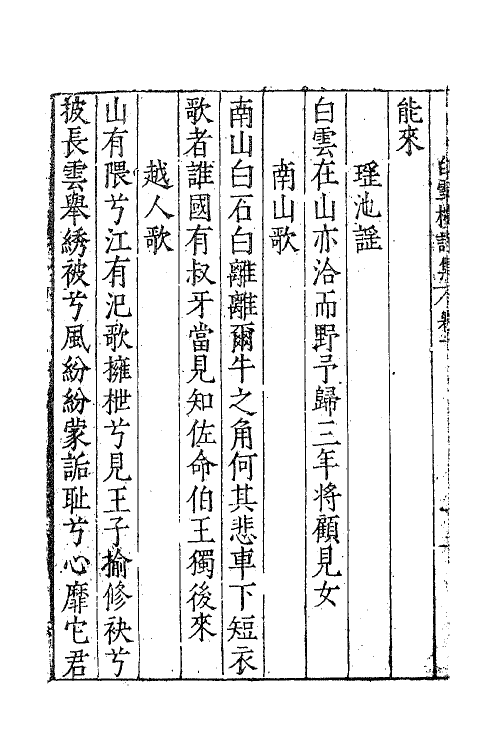 白雪樓詩集 卷一
能來
瑶池謡
白雲在山亦洽而野予歸三年将顧見女
南山歌
南山白石白離離爾牛之角何其悲車下短衣
歌者誰國有叔牙當見知佐命伯王獨後來
越人歌
山有隈兮江有汜歌擁枻兮見王子揄修袂兮
披長雲舉綉被兮風紛紛蒙詬耻兮心靡它君